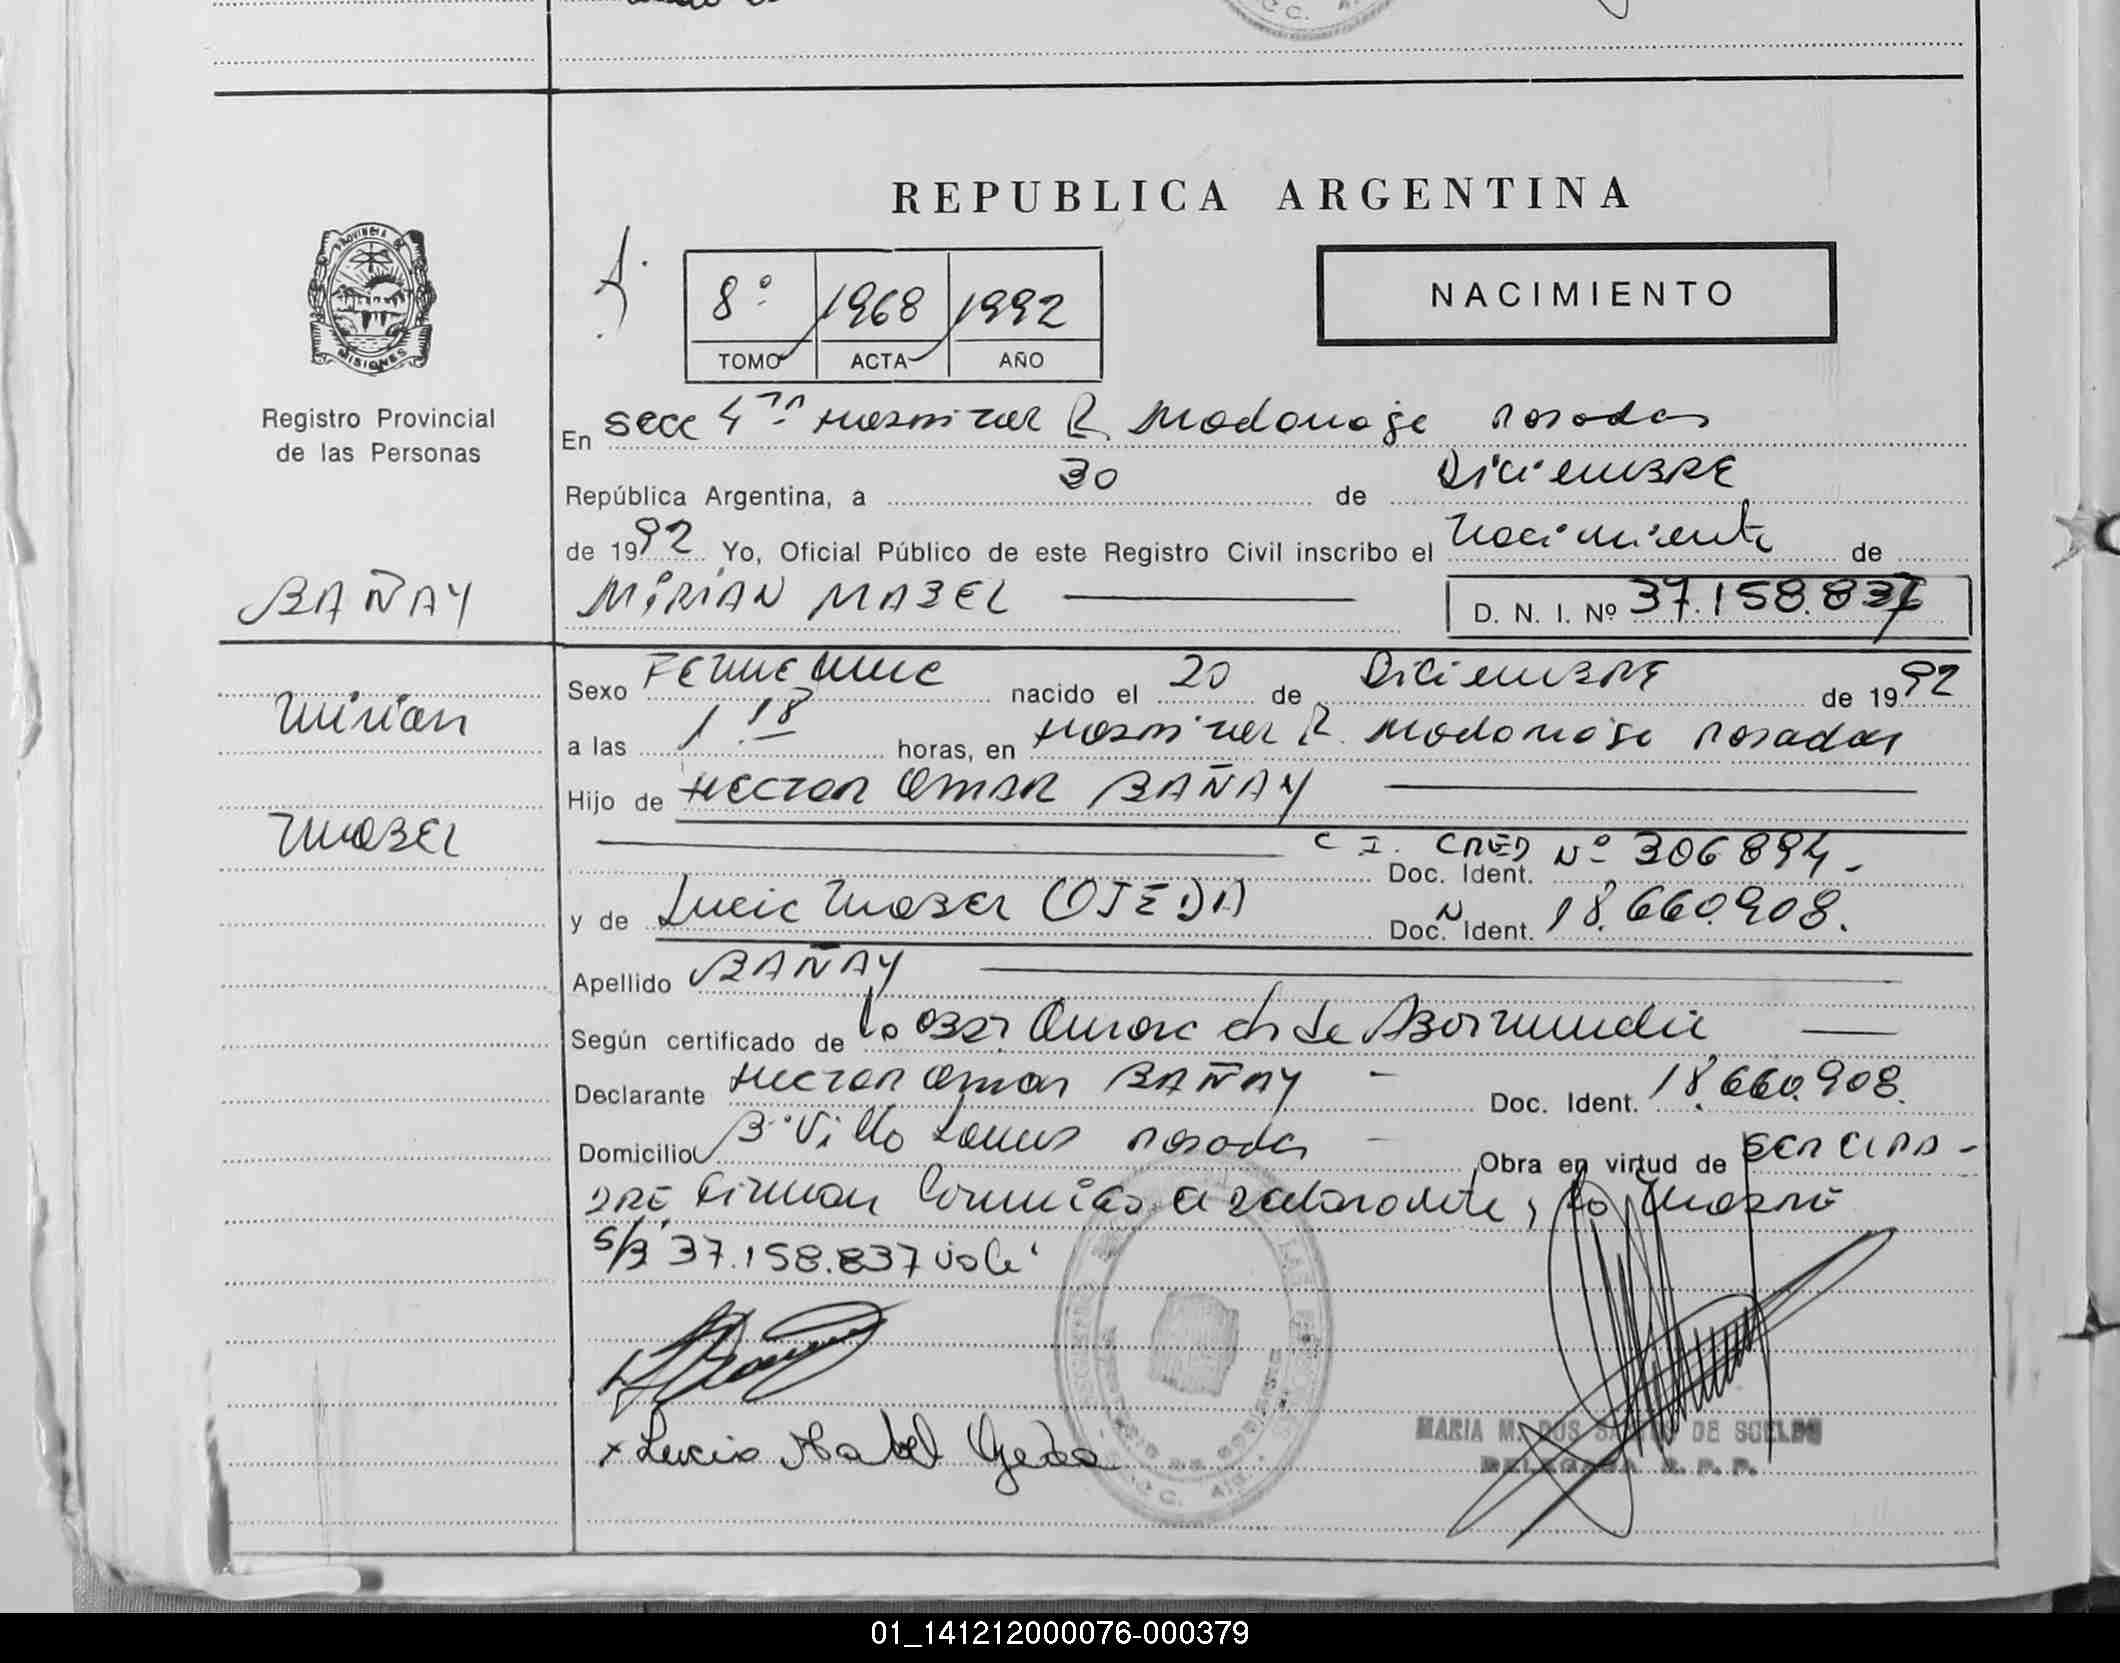 REPUBLICA ARGENTINA
PROVINCIA DE
MISIONES
Registro Provincial
de las Personas
8º 1968 1992
TOMO ACTA AÑO
NACIMIENTO
En Secc 4ta Hospital R. Madariaga Posadas
República Argentina, a 30 de Diciembre
de 1992 Yo, Oficial Público de este Registro Civil inscribo el Nacimiento de
BAÑAY
MIRIAN MABEL
D. N. I. Nº 37.158.837
Mirian
Mabel
Sexo Femenino nacido el 20 de Diciembre de 1992
a las 1.18 horas, en Hospital R. Madariaga Posadas
Hijo de Hector Omar BAÑAY
C I. CRED Nº 306894.-
Doc. Ident.
y de Lucia Mabel OJEDA Doc. Ident. 18.660.908.
Apellido BAÑAY
Según certificado de la Obst.
Declarante Hector Omar BAÑAY - Doc. Ident. 18.660.908.
Domicilio Bº Villa Posadas - Obra en virtud de ser el pa-
dre. Firman Conmigo el declarante, la
s/b 37.158.837 vale
x Lucia Mabel Ojeda
MARIA M. DOS SANTOS DE SUELDO
DELEGADA R. P. P.
01_141212000076-000379